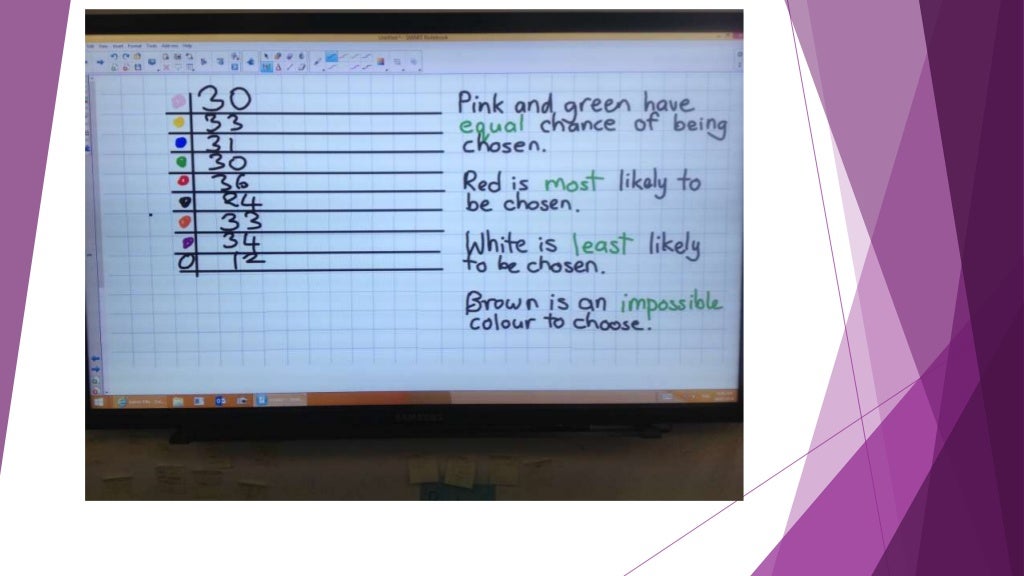 30
33
31
30
36
24
33
34
12
Pink and green have
equal chance of being
chosen.
Red is most likely to
be chosen.
White is least likely
to be chosen.
Brown is an impossible
colour to choose.
SAMSUNG